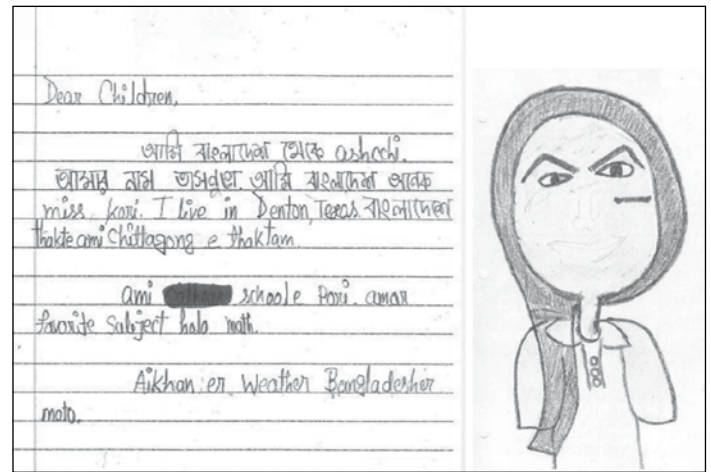 Dear Children,
আমি বাংলাদেশ থেকে ashchi.
আমার নাম তাসনুভা. আমি বাংলাদেশ অনেক
miss kori. I live in Denton, Texas. বাংলাদেশে
thakte ami Chittagong e thaktam.
ami schoole pori. amar
favorite subject holo math.
Aikhan er Weather Bangladesher
moto.